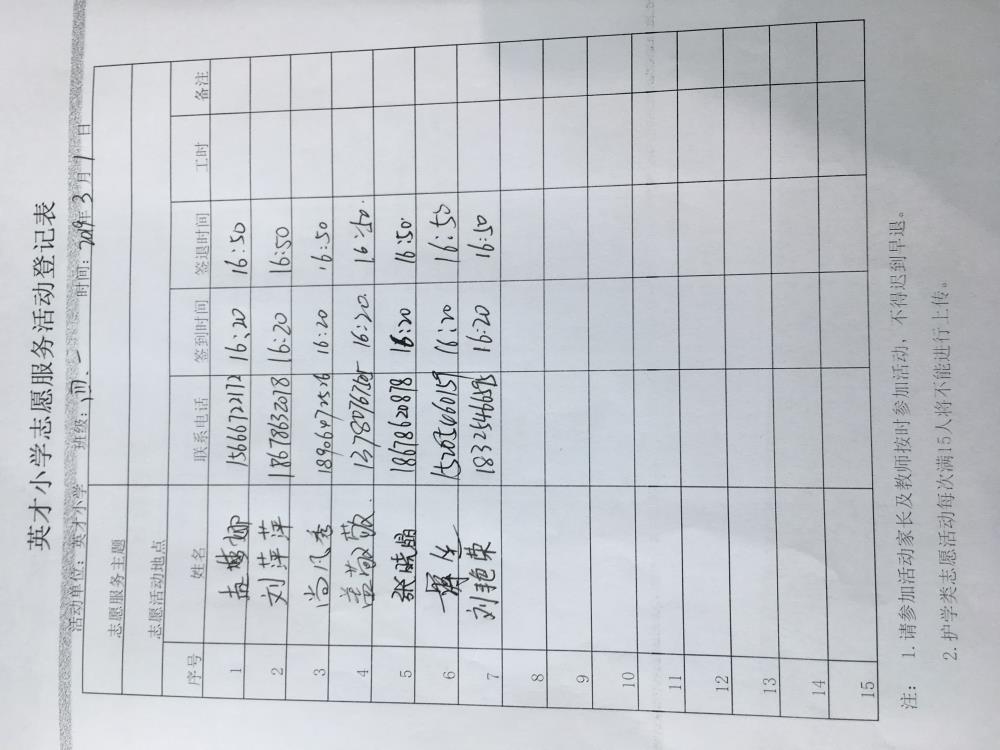 英才小学志愿服务活动登记表
活动单位：英才小学 班级：四.一 时间：2019年3月1日
志愿服务主题
志愿活动地点
序号 姓名 联系电话 签到时间 签退时间 工时 备注
1 孟 娜 15666722172 16:20 16:50
2 刘萍萍 18678632078 16:20 16:50
3 尚凤秀 18906472526 16:20 16:50
4 盖敬敬 13780767565 16:20 16:50
5 张晓晶 18678620878 16:20 16:50
6 15265460159 16:20 16:50
7 刘艳荣 18325466595 16:20 16:50
8
9
10
11
12
13
14
15
注： 1.请参加活动家长及教师按时参加活动，不得迟到早退。
2.护学类志愿活动每次满15人将不能进行上传。